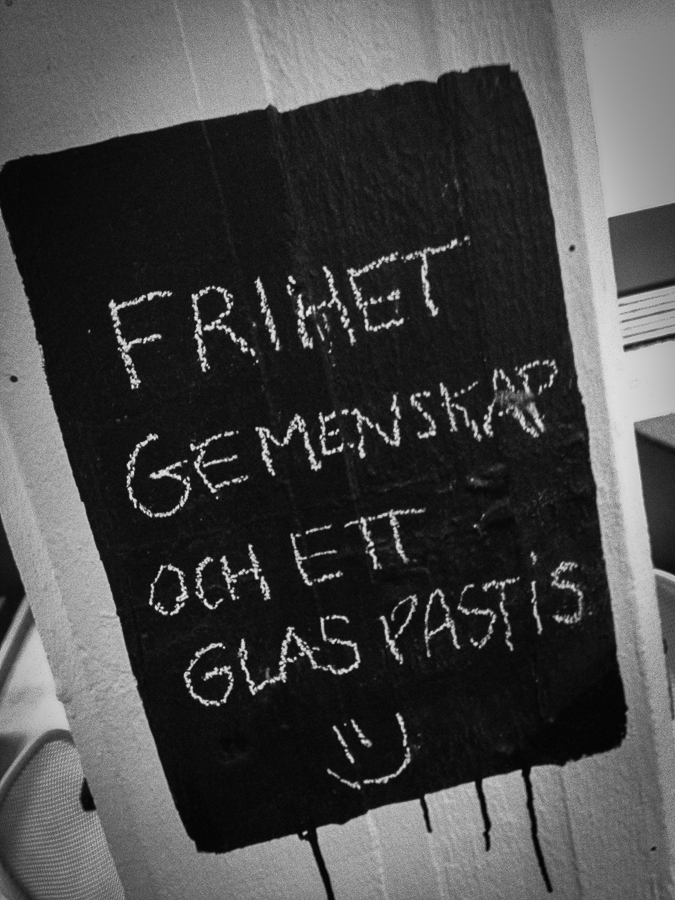 FRIHET
GEMENSKAP
OCH ETT
GLAS PASTiS